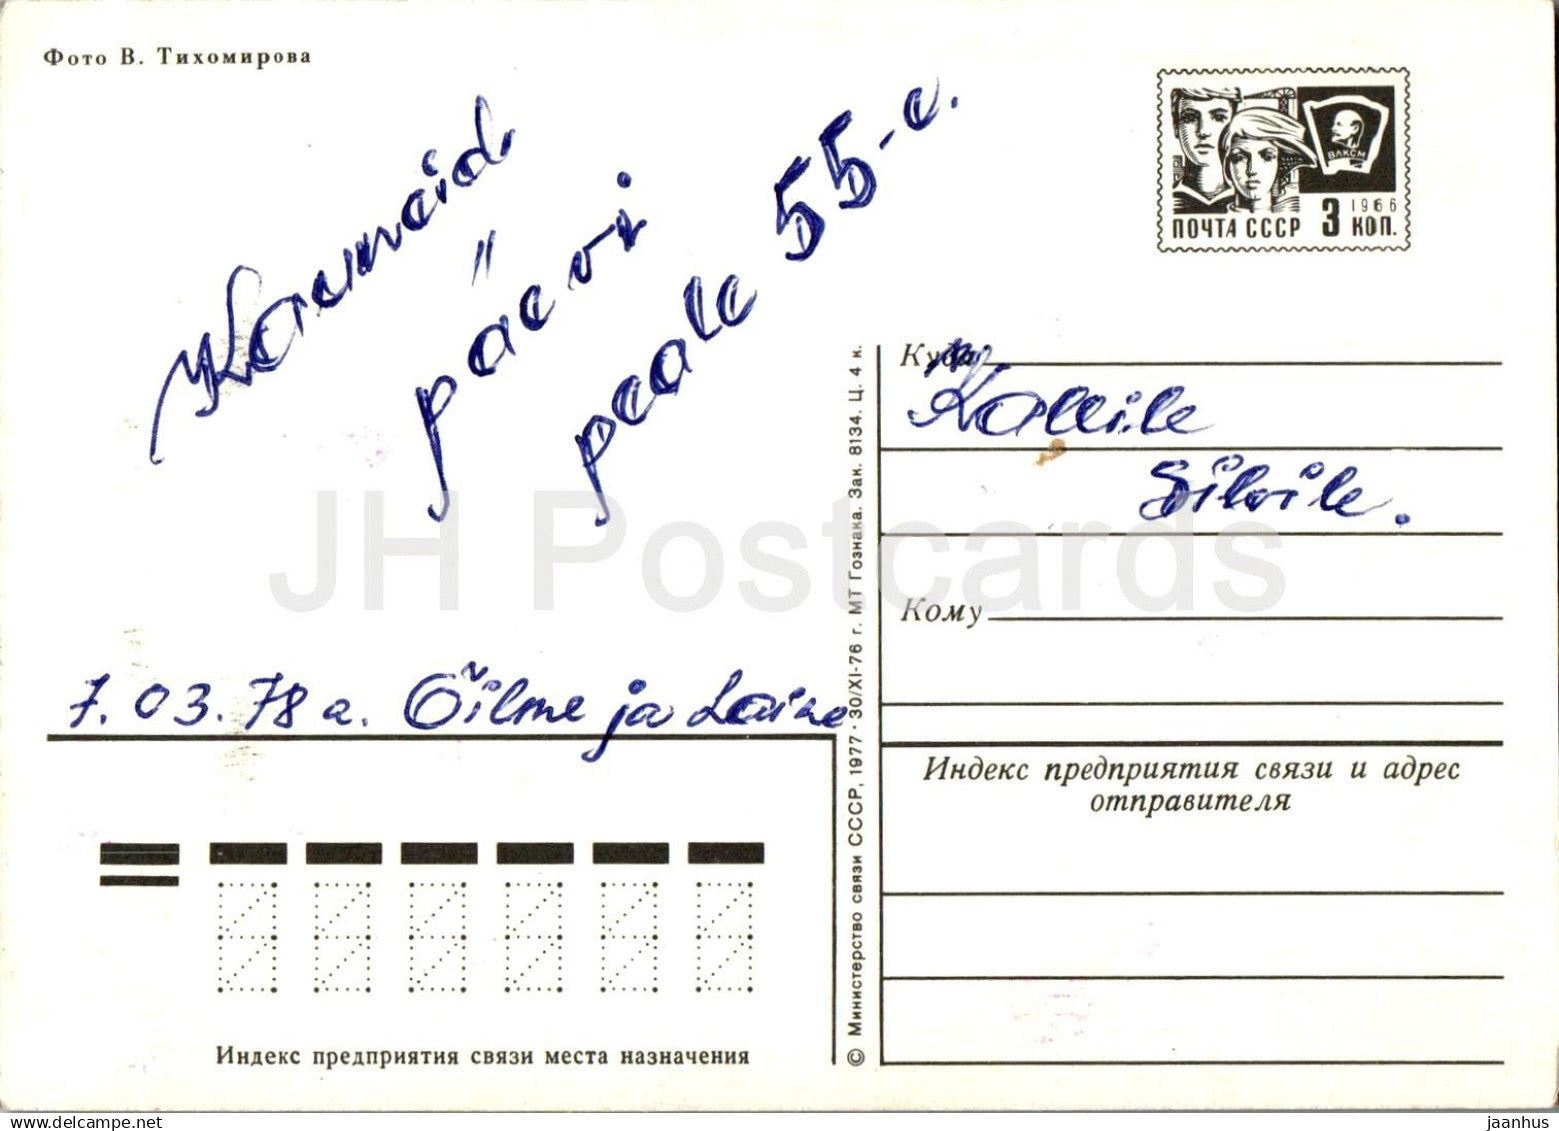 Фото В. Тихомирова
Kauneid
päevi
peale 55-e.
7.03.78 a. Õilme ja Laine
ВЛКСМ
1966
ПОЧТА СССР 3 КОП.
Куда
Kallile
Silvile.
Кому
Индекс предприятия связи и адрес
отправителя
© Министерство связи СССР, 1977 · 30/XI-76 г. МТ Гознака. Зак. 8134. Ц. 4 к.
Индекс предприятия связи места назначения
JH Postcards
jaanhus
delcampe.net